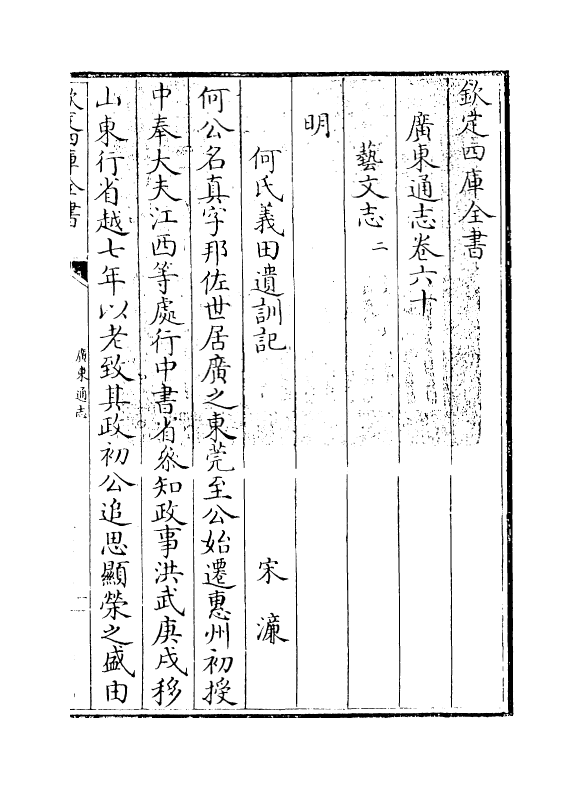 欽定四庫全書
廣東通志卷六十
藝文志二
明
何氏義田遺訓記 宋濂
何公名真字邦佐世居廣之東莞至公始遷惠州初授
中奉大夫江西等處行中書省叅知政事洪武庚戌移
山東行省越七年以老致其政初公追思顯榮之盛由
欽定四庫全書
廣東通志
一